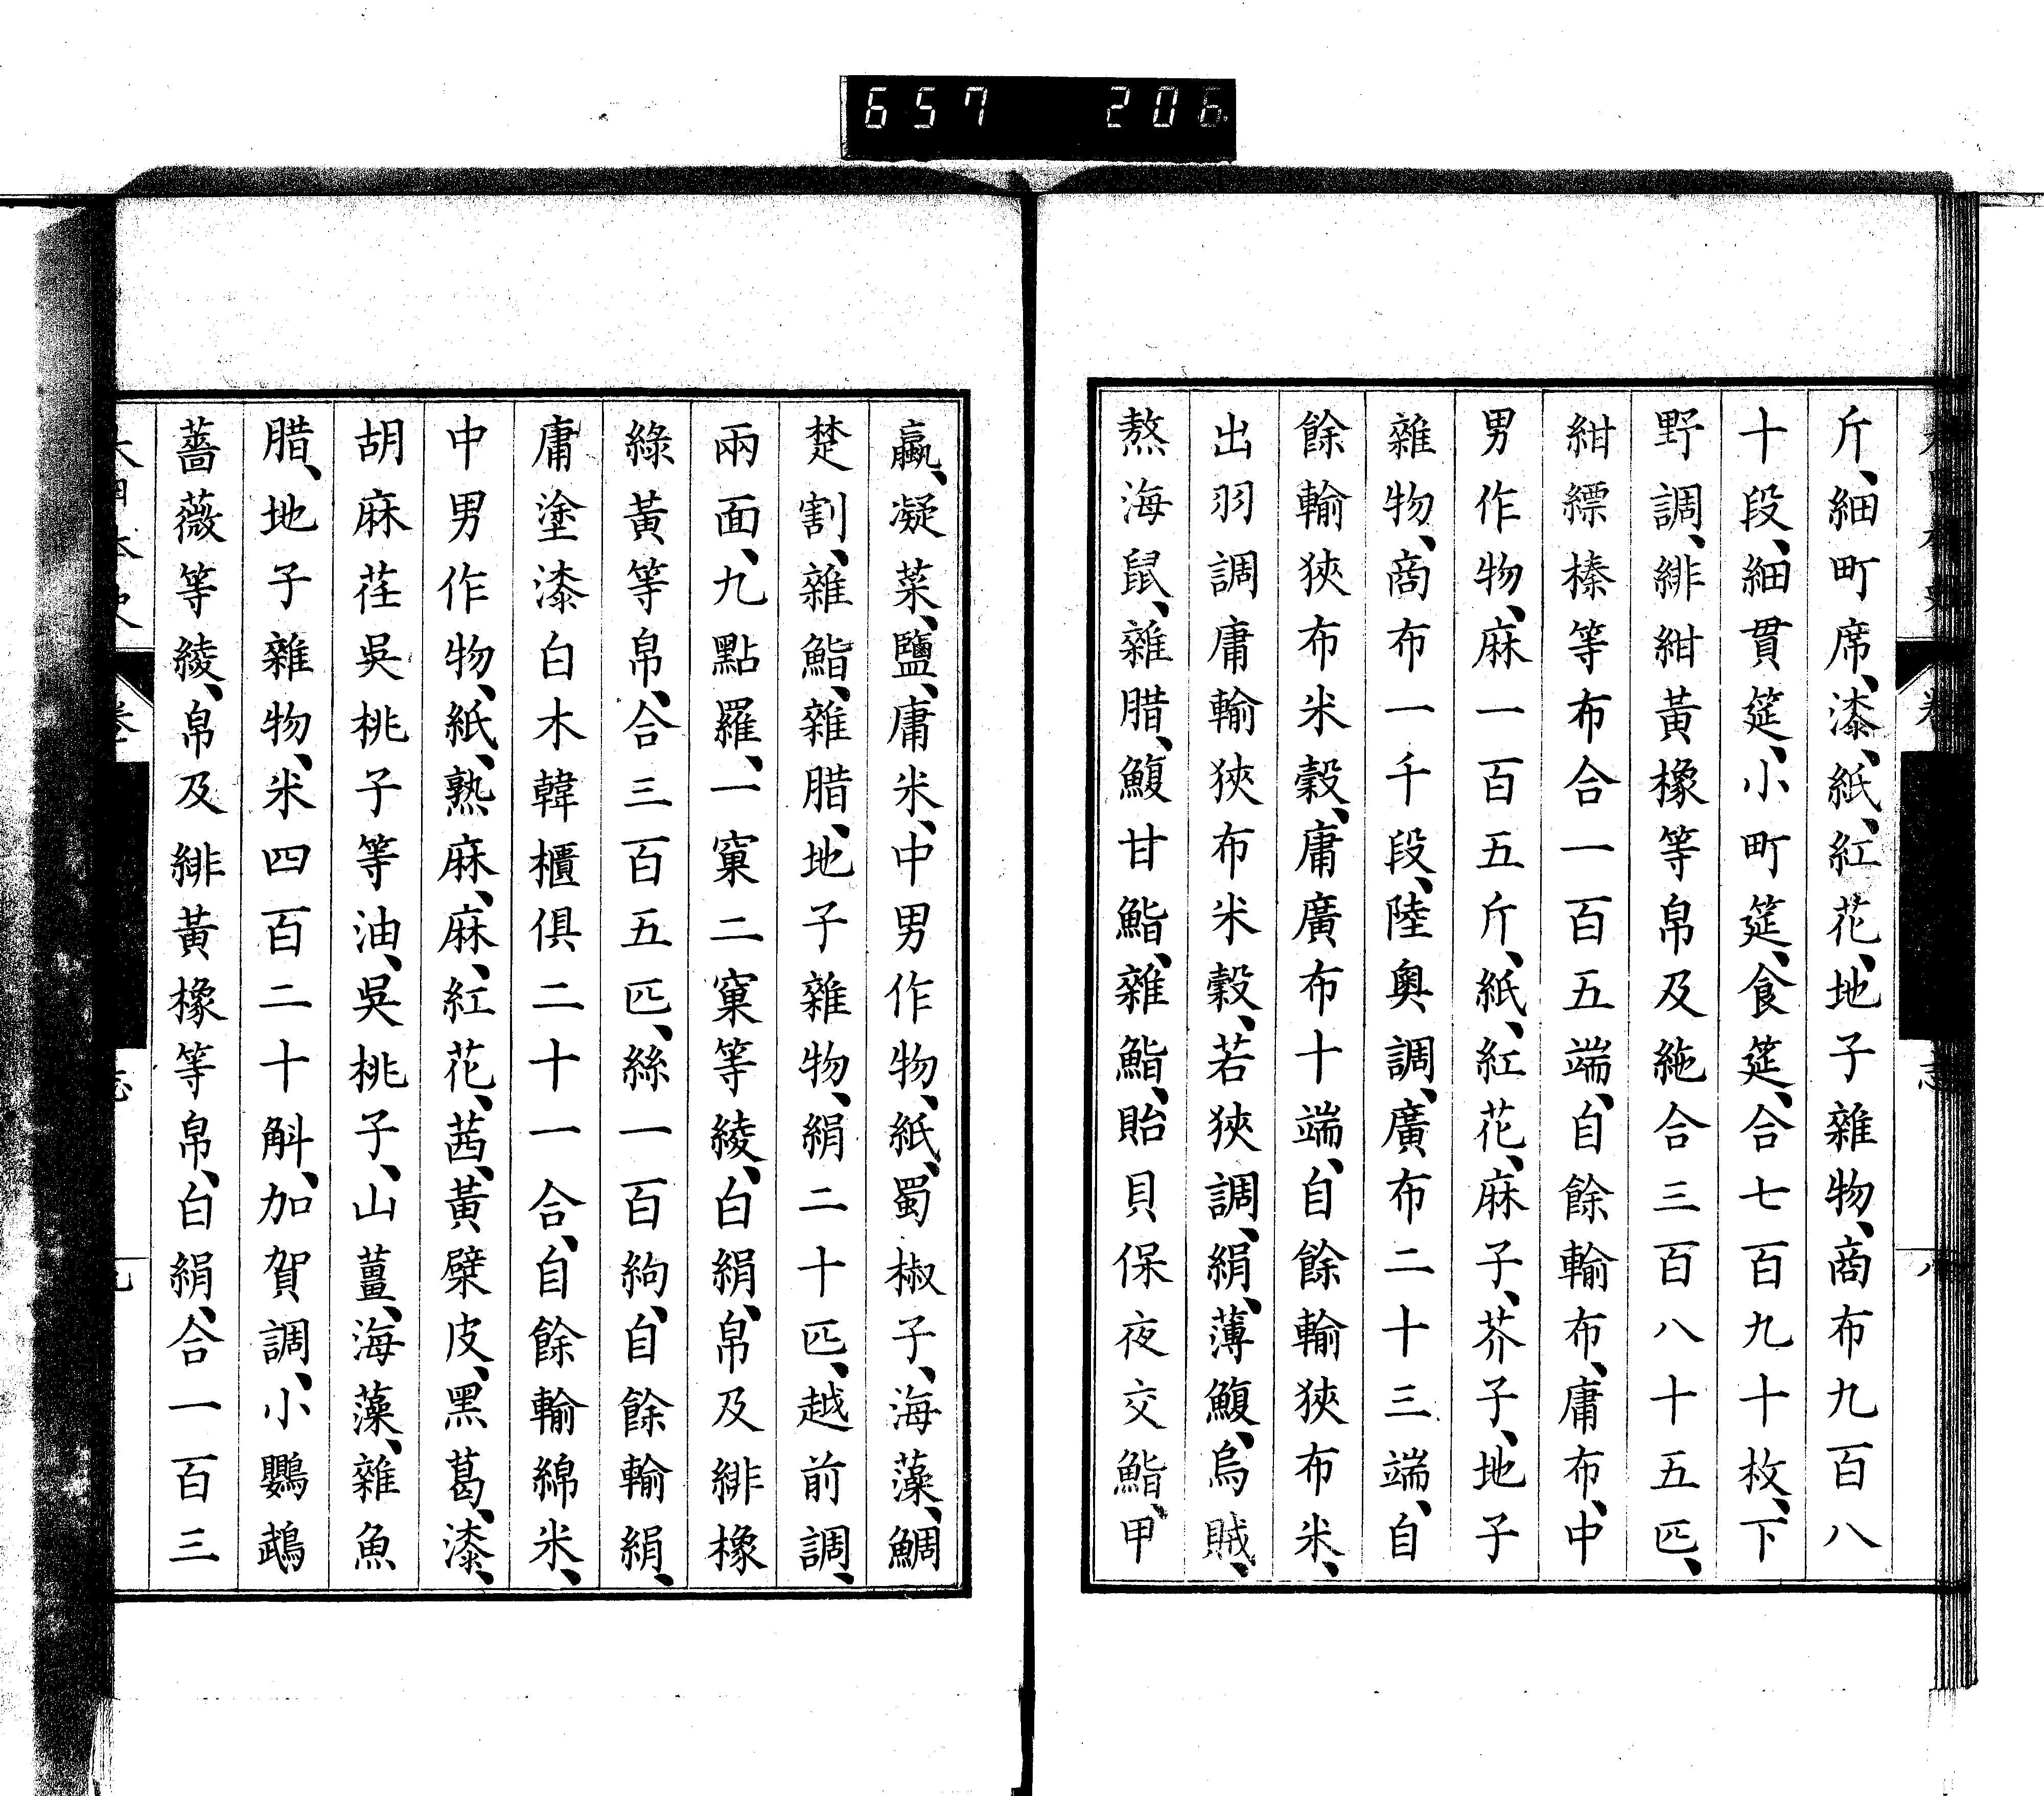 657 206
斤、細町席、漆、紙、紅花、地子雜物、商布九百八
十段、細貫筵、小町筵、食筵、合七百九十枚、下
野調、緋紺黃橡等帛及絁合三百八十五匹、
紺縹榛等布合一百五端、自餘輸布、庸布、中
男作物、麻一百五斤、紙、紅花、麻子、芥子、地子
雜物、商布一千段、陸奧調、廣布二十三端、自
餘輸狹布米穀、庸廣布十端、自餘輸狹布米、
出羽調庸輸狹布米穀、若狹調、絹、薄鰒、烏賊、
熬海鼠、雜腊、鰒甘鮨、雜鮨、貽貝保夜交鮨、甲
蠃、凝菜、鹽、庸米、中男作物、紙、蜀椒子、海藻、鯛
楚割、雜鮨、雜腊、地子雜物、絹二十匹、越前調、
兩面、九點羅、一窠二窠等綾、白絹、帛及緋橡
綠黃等帛、合三百五匹、絲一百絇、自餘輸絹、
庸塗漆白木韓櫃俱二十一合、自餘輸綿米、
中男作物、紙、熟麻、麻、紅花、茜、黃檗皮、黑葛、漆、
胡麻荏吳桃子等油、吳桃子、山薑、海藻、雜魚
腊、地子雜物、米四百二十斛、加賀調、小鸚鵡
薔薇等綾、帛及緋黃橡等帛、白絹、合一百三